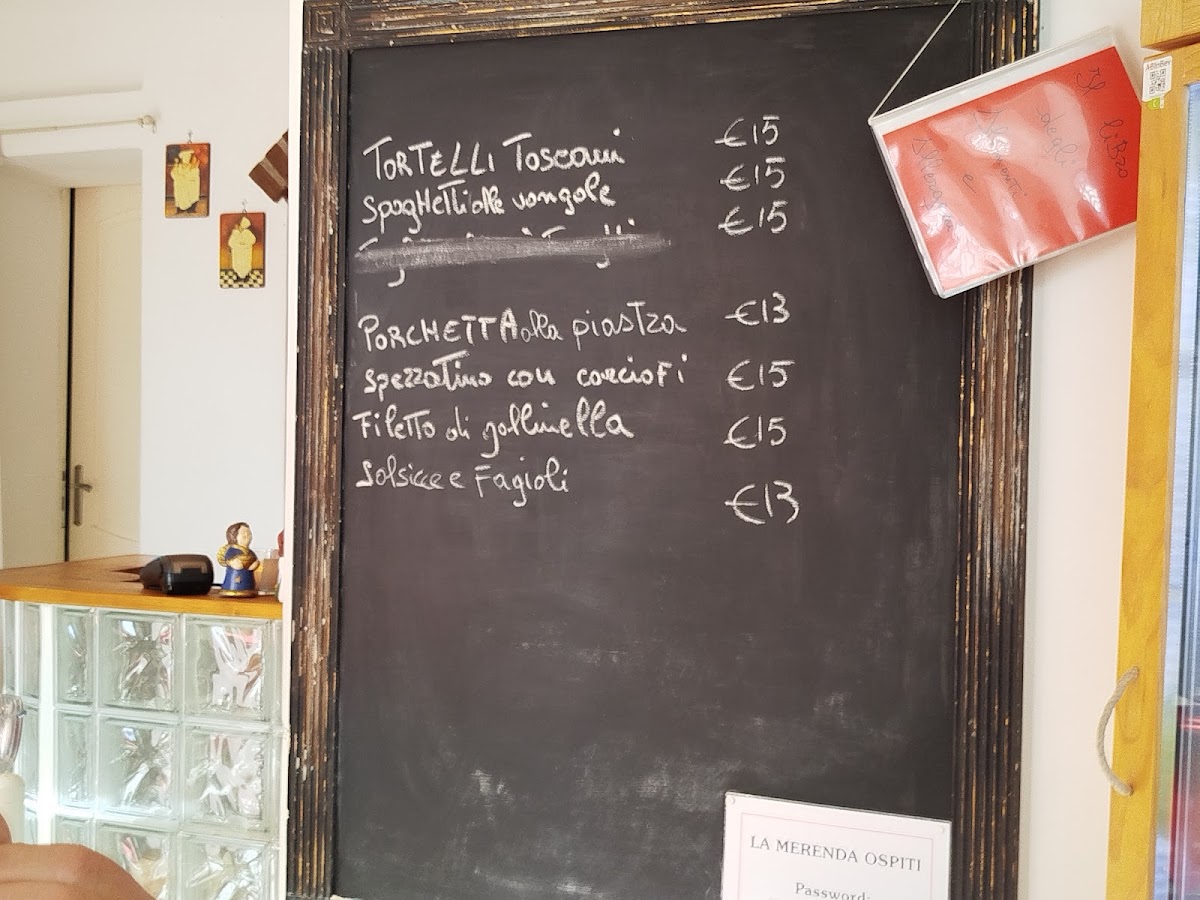 TORTELLI Toscani €15
Spaghetti alle vongole €15
€15
PORCHETTA alla piastra €13
Spezzatino con carciofi €15
Filetto di gallinella €15
Salsicce e Fagioli €13
Il libro
degli
Alimenti
e
Allergeni
LA MERENDA OSPITI
Password: